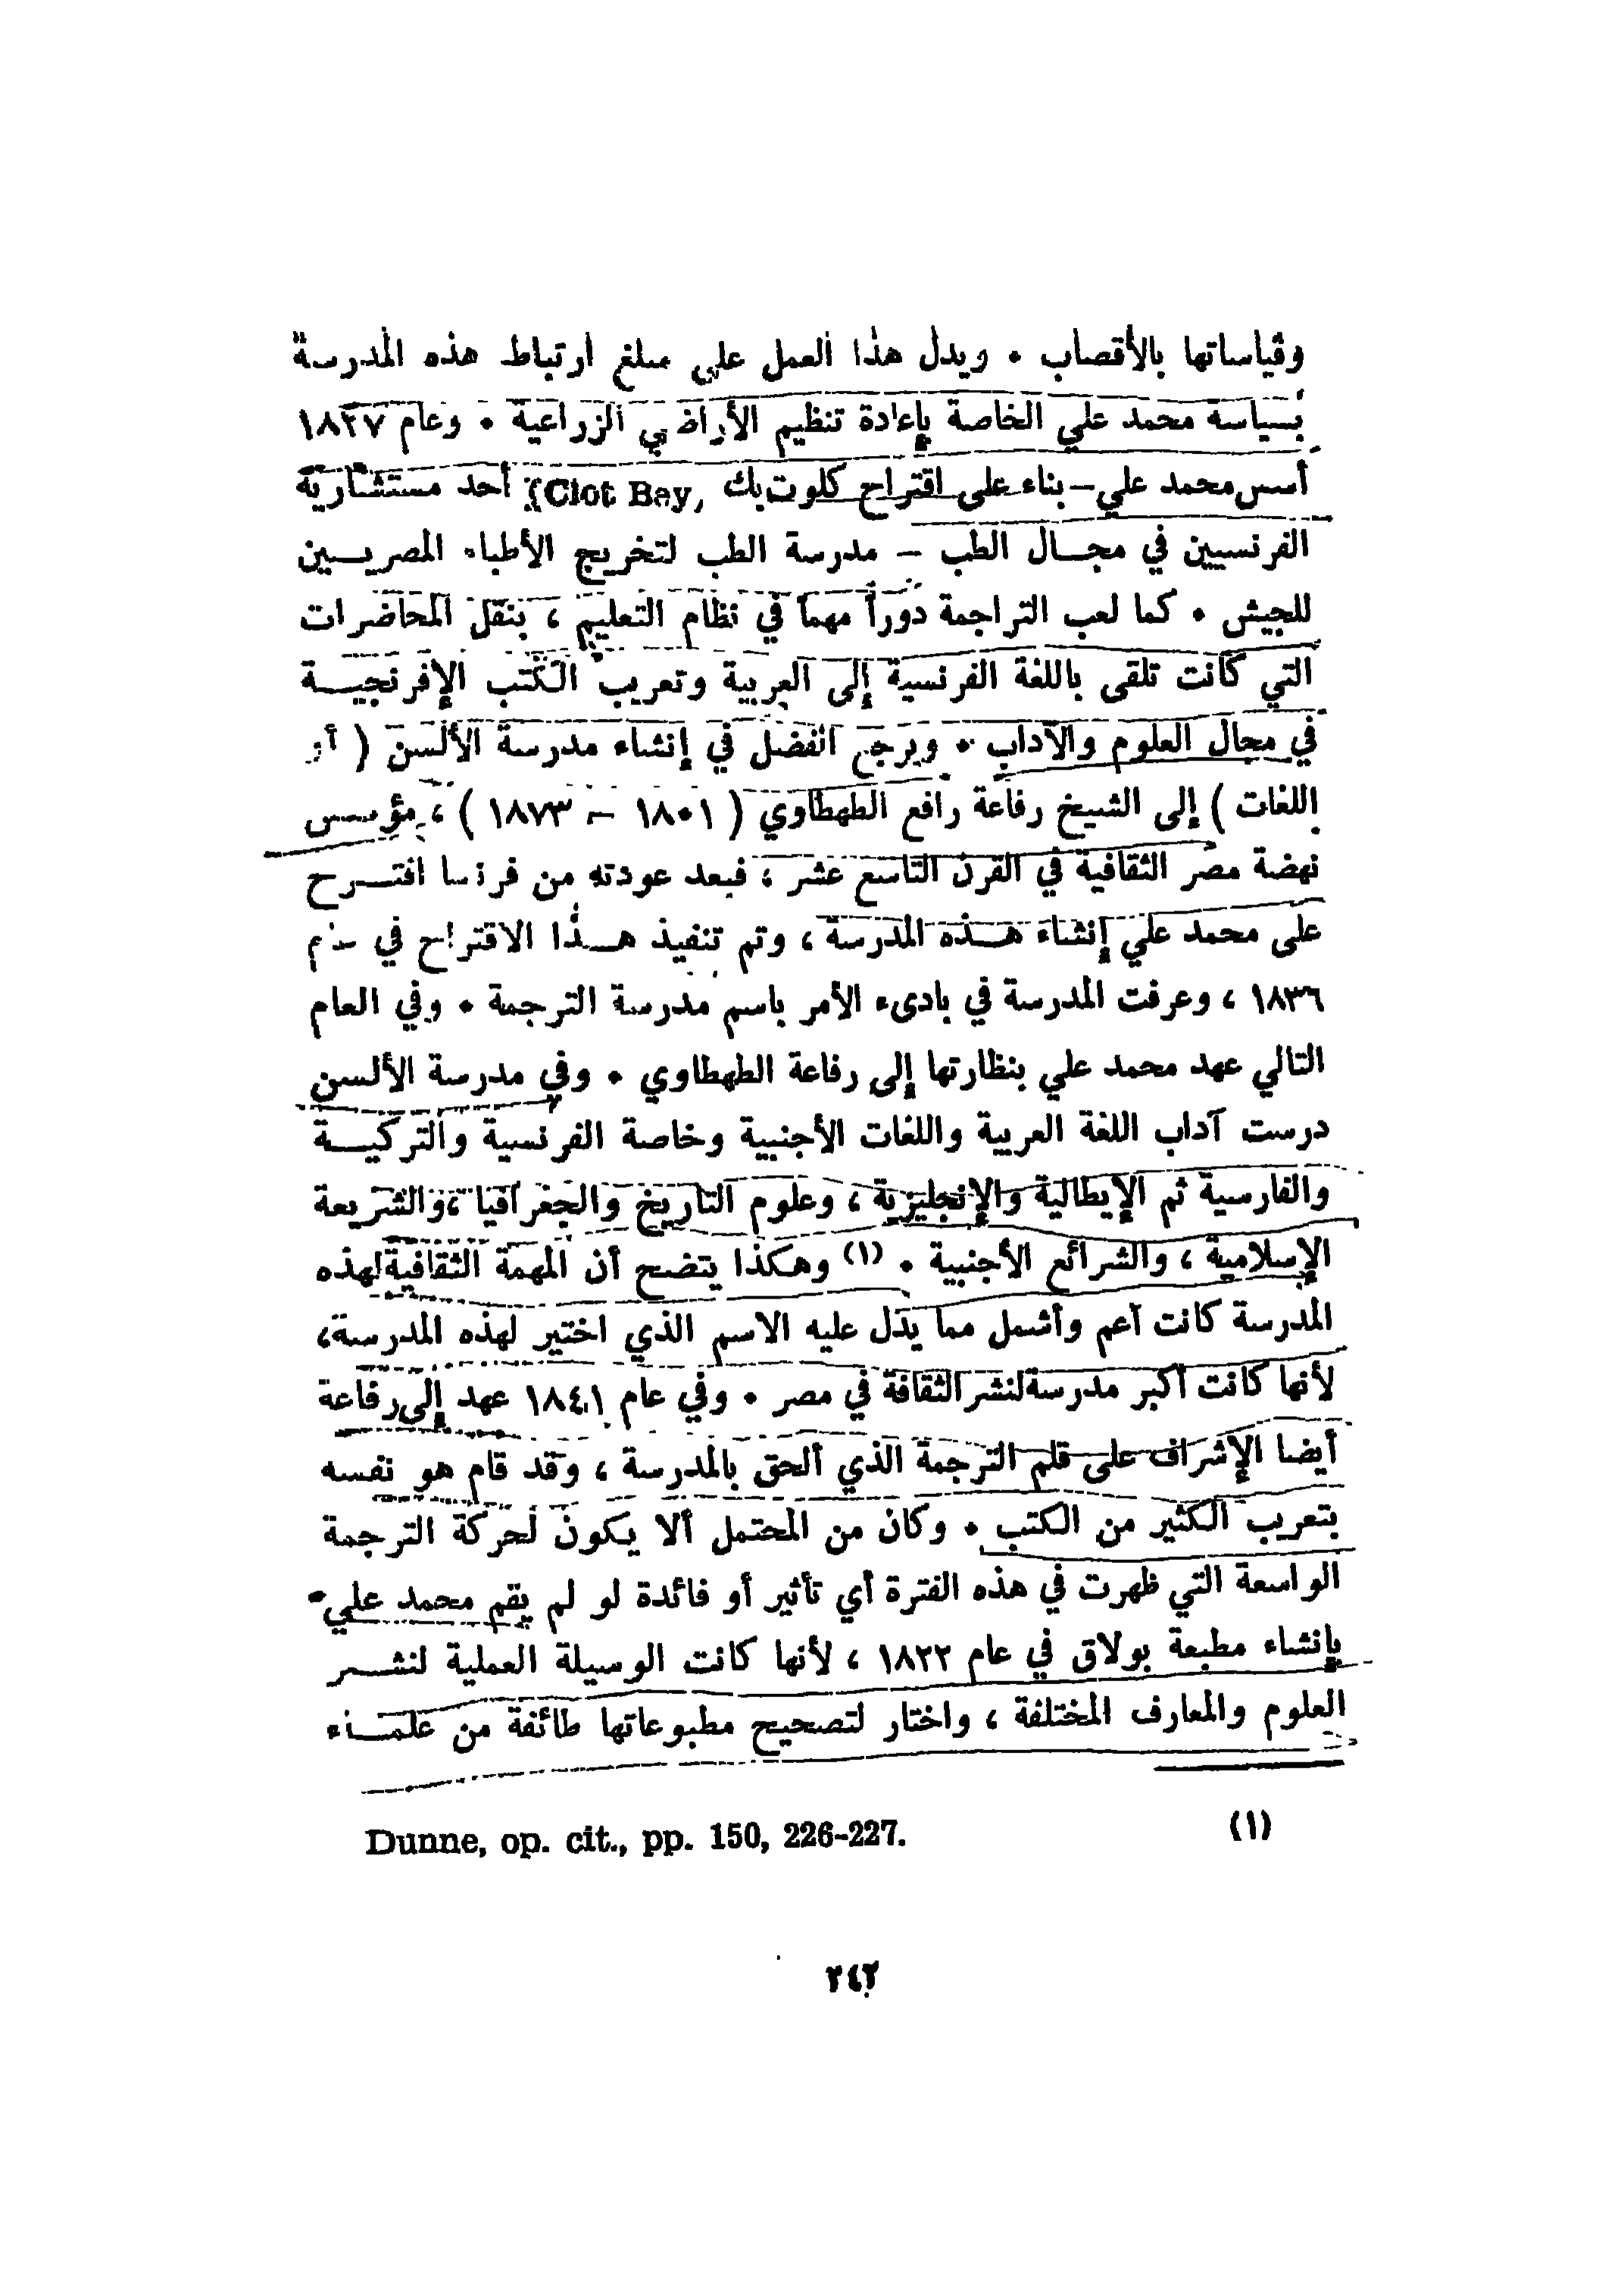 وقياساتها بالأقصاب . ويدل هذا العمل على مبلغ ارتباط هذه المدرسة
بسياسة محمد علي الخاصة بإعادة تنظيم الأراضي الزراعية . وعام ١٨٢٧
أسس محمد علي – بناء على اقتراح كلوت بك (Clot Bey) أحد مستشارية
الفرنسيين في مجال الطب – مدرسة الطب لتخريج الأطباء المصريين
للجيش . كما لعب التراجمة دوراً مهماً في نظام التعليم ، بنقل المحاضرات
التي كانت تلقى باللغة الفرنسية إلى العربية وتعريب الكتب الإفرنجية
في مجال العلوم والآداب . ويرجع الفضل في إنشاء مدرسة الألسن ( أو
اللغات ) إلى الشيخ رفاعة رافع الطهطاوي ( ١٨٠١ – ١٨٧٣ ) ، مؤسس
نهضة مصر الثقافية في القرن التاسع عشر ، فبعد عودته من فرنسا اقترح
على محمد علي إنشاء هذه المدرسة ، وتم تنفيذ هذا الاقتراح في عام
١٨٣٦ ، وعرفت المدرسة في بادىء الأمر باسم مدرسة الترجمة . وفي العام
التالي عهد محمد علي بنظارتها إلى رفاعة الطهطاوي . وفي مدرسة الألسن
درست آداب اللغة العربية واللغات الأجنبية وخاصة الفرنسية والتركية
والفارسية ثم الإيطالية والإنجليزية ، وعلوم التاريخ والجغرافيا ، والشريعة
الإسلامية ، والشرائع الأجنبية . (١) وهكذا يتضح أن المهمة الثقافية لهذه
المدرسة كانت أعم وأشمل مما يدل عليه الاسم الذي اختير لهذه المدرسة،
لأنها كانت أكبر مدرسة لنشر الثقافة في مصر . وفي عام ١٨٤١ عهد إلى رفاعة
أيضا الإشراف على قلم الترجمة الذي ألحق بالمدرسة ، وقد قام هو نفسه
بتعريب الكثير من الكتب . وكان من المحتمل ألا يكون لحركة الترجمة
الواسعة التي ظهرت في هذه الفترة أي تأثير أو فائدة لو لم يقم محمد علي
بإنشاء مطبعة بولاق في عام ١٨٢٢ ، لأنها كانت الوسيلة العملية لنشر
العلوم والمعارف المختلفة ، واختار لتصحيح مطبوعاتها طائفة من علماء
(١) Dunne, op. cit., pp. 150, 226-227.
٢٤٢